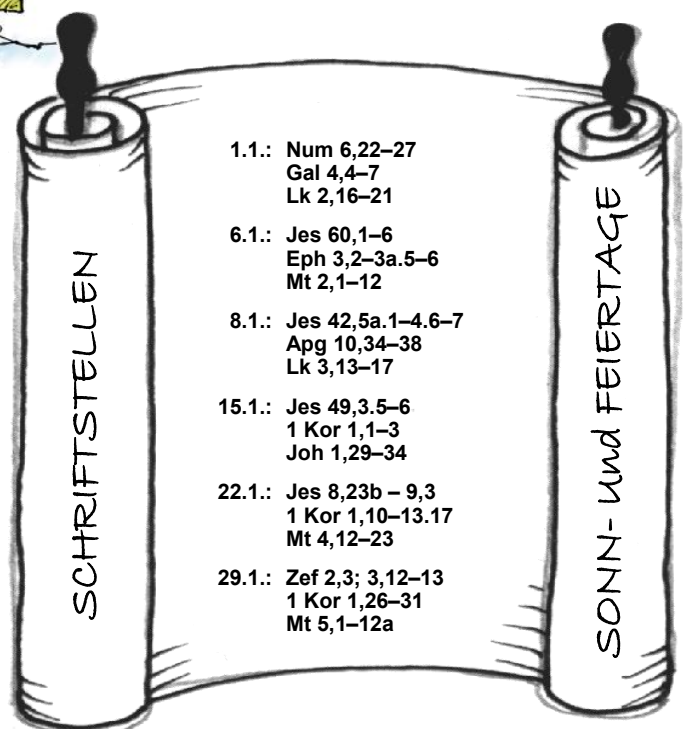 SCHRIFTSTELLEN
1.1.: Num 6,22–27
Gal 4,4–7
Lk 2,16–21
6.1.: Jes 60,1–6
Eph 3,2–3a.5–6
Mt 2,1–12
8.1.: Jes 42,5a.1–4.6–7
Apg 10,34–38
Lk 3,13–17
15.1.: Jes 49,3.5–6
1 Kor 1,1–3
Joh 1,29–34
22.1.: Jes 8,23b – 9,3
1 Kor 1,10–13.17
Mt 4,12–23
29.1.: Zef 2,3; 3,12–13
1 Kor 1,26–31
Mt 5,1–12a
SONN- und FEIERTAGE